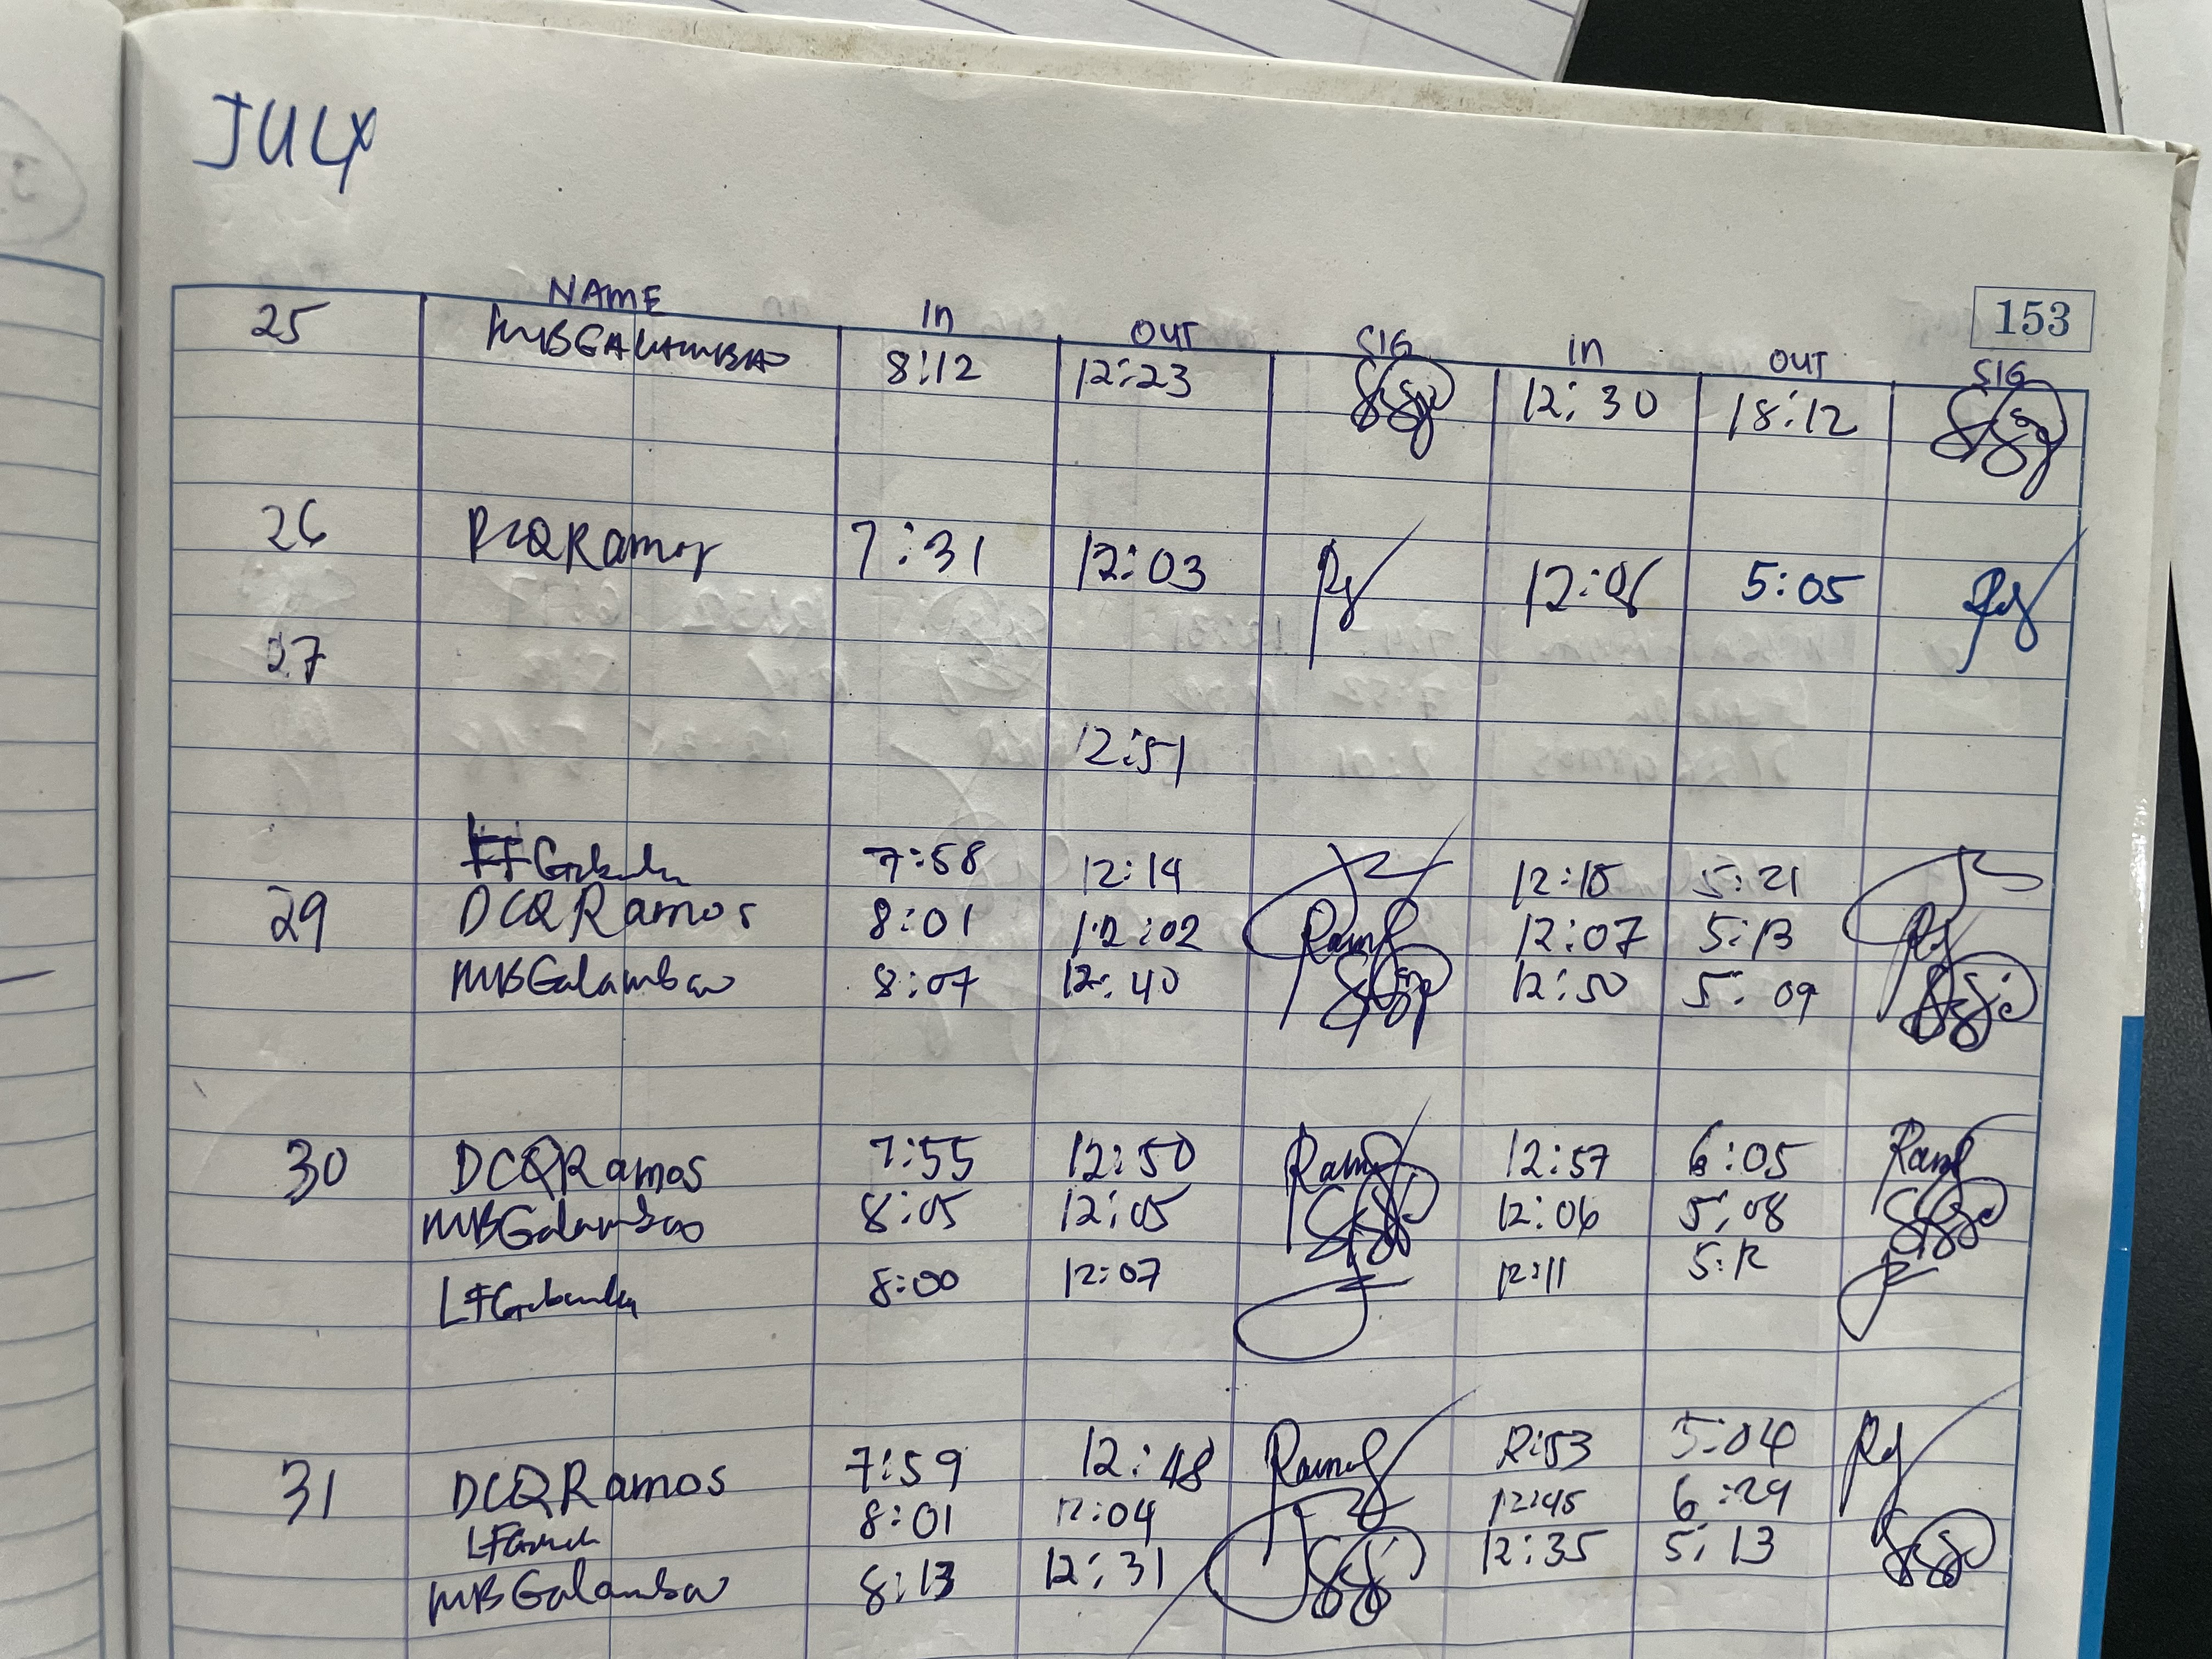 JULY
153
NAME In OUT SIG In OUT SIG
25 MBGALAMBAO 8:12 12:23 12:30 18:12
26 DCQRamos 7:31 12:03 12:05 5:05
27
12:51
7:58 12:14 12:15 5:21
29 DCQRamos 8:01 12:02 12:07 5:13
MBGalambao 8:07 12:40 12:50 5:09
30 DCQRamos 7:55 12:50 12:57 6:05
MBGalambao 8:05 12:05 12:06 5:08
8:00 12:07 12:11 5:12
31 DCQRamos 7:59 12:48 12:53 5:04
8:01 12:04 12:45 6:29
MBGalambao 8:13 12:31 12:35 5:13